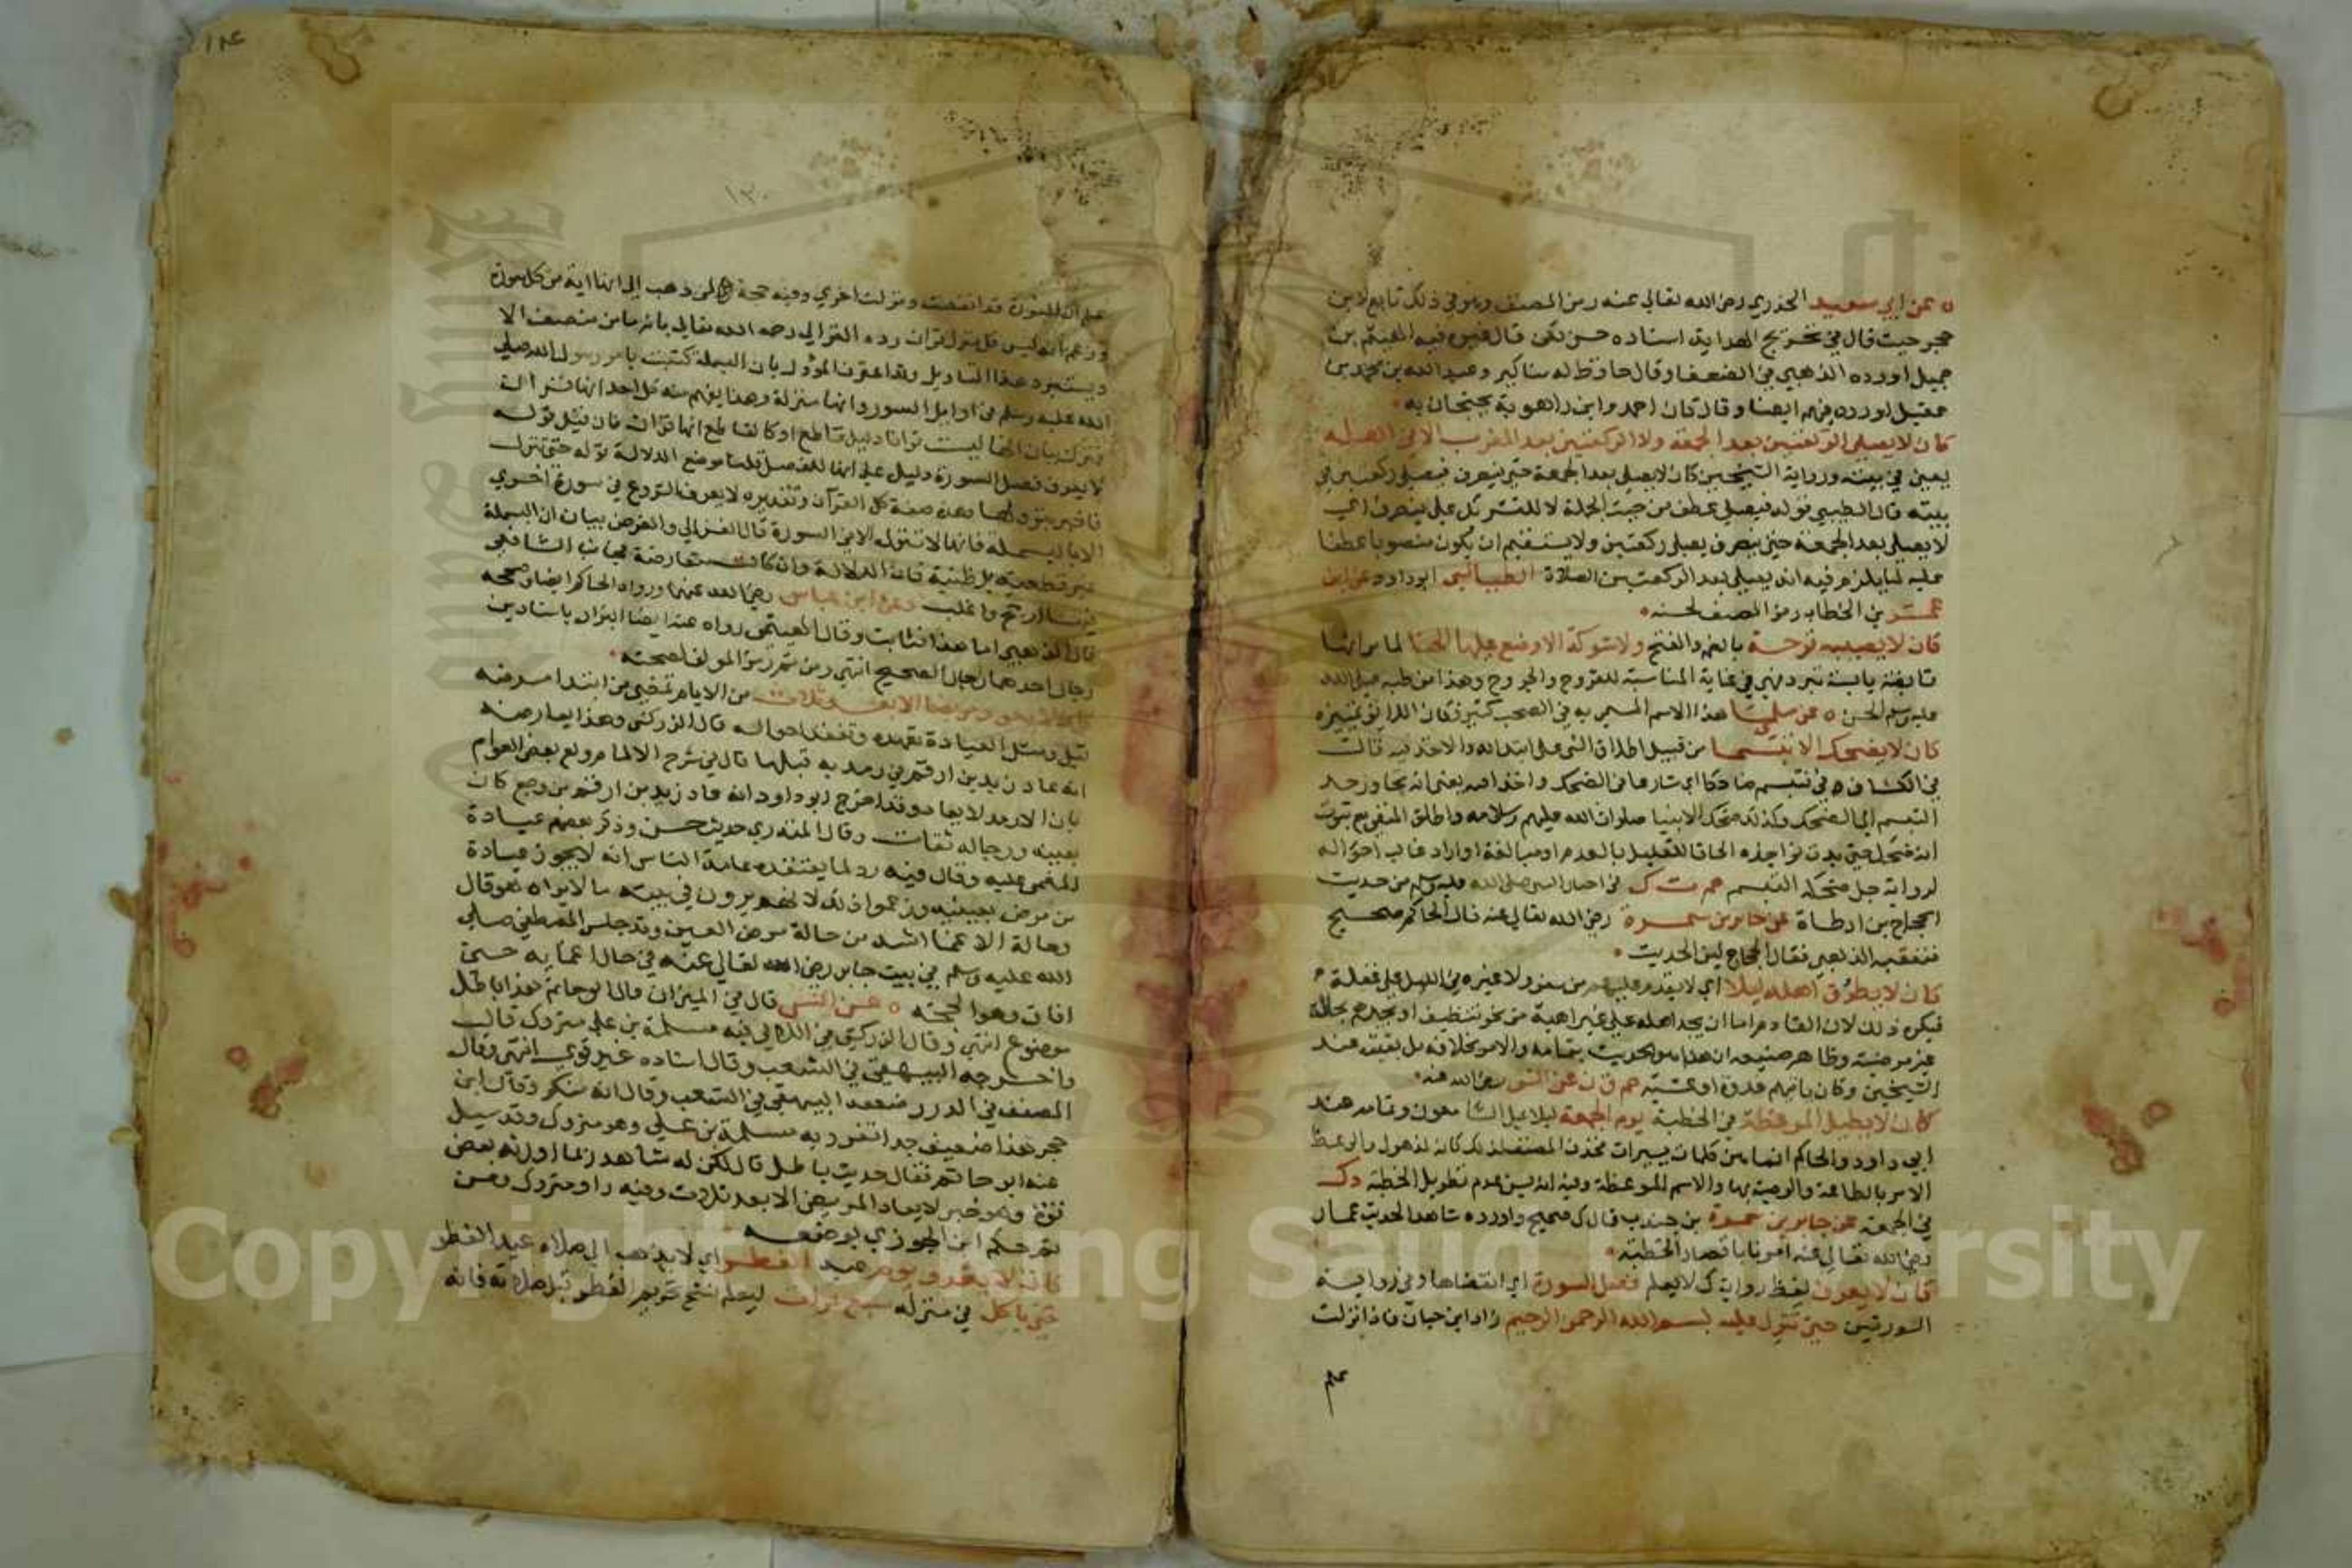 ه عن ابي سعيد الخدري رضي الله تعالى عنه رمز المصنف وهو في ذلك تابع لابن
حجر حيث قال في تخريج الهداية اسناده حسن لكن قال غيره فيه الهيثم بن
جميل اورده الذهبي في الضعفا وقال حافظ له مناكير وعبد الله بن محمد بن
عقيل اورده فيهم ايضا وقال كان احمد وابن راهوية يحتجان به
كان لا يصلي الركعتين بعد الجمعة ولا الركعتين بعد المغرب الا في اهله
يعني في بيته ورواية الشيخين كان لا يصلي بعد الجمعة حتى ينصرف فيصلي ركعتين في
بيته قال الطيبي قوله فيصلي عطف من حيث الجملة لا للتشريك على ينصرف اي
لا يصلي بعد الجمعة حتى ينصرف يصلي ركعتين ولا يستقيم ان يكون منصوبا عطفا
عليه لما يلزم فيه انه يصلي بعد الركعتين الصلاة الطيالسي ابو داود عن ابن
عمر بن الخطاب رمز المصنف لحسنه
كان لا يصيبه قرحة بالضم والفتح ولا شوكة الا وضع عليها الحنا لما مر انها
قابضة يابسة تبرد فهي في غاية المناسبة للقروح والجروح وهذا من طبه صلى الله
عليه وسلم الحسن ه عن سلمى هذا الاسم المسمى به في الصحب كثير فكان اللائق تمييزه
كان لا يضحك الا تبسما من قبيل اطلاق الشي على ابتدائه والاخذ فيه قالت
في الكشاف في فتبسم ضاحكا اي شارعا في الضحك واخذا فيه يعني انه تجاوز حد
التبسم الى الضحك وكذلك ضحك الانبيا صلوات الله عليهم وسلامه واطلق المنفي مع ثبوت
انه ضحك حتى بدت نواجذه الحاقا للقليل بالعدم او مبالغة او اراد غالب احواله
لرواية جل ضحكه التبسم حم ت ك في اخبار النبي صلى الله عليه وسلم من حديث
الحجاج بن ارطاة عن جابر بن سمرة رضي الله تعالى عنه قال الحاكم صحيح
فتعقبه الذهبي فقال الحجاج لين الحديث
كان لا يطرق اهله ليلا اي لا يقدم عليهم من سفر ولا غيره في الليل على غفلة
فيكره ذلك لان القادم اما ان يجد اهله على غير اهبة من نحو تنظيف او يجدهم بحالة
غير مرضية وظاهر صنيعه ان هذا هو الحديث بتمامه والامر بخلافه بل بقيته عند
الشيخين وكان ياتيهم غدوة او عشية حم ق ن عن انس رضي الله عنه
كان لا يطيل الموعظة في الخطبة يوم الجمعة ليلا يمل السامعون وتمامه عند
ابي داود والحاكم انما هن كلمات يسيرات فحذف المصنف لذلك كانه لذهول والوعظ
الامر بالطاعة والوصية بها والاسم الموعظة وفيه انه يسن عدم تطويل الخطبة د ك
في الجمعة عن جابر بن سمرة بن جندب قال ك صحيح واورده شاهدا لحديث عمار
رضي الله تعالى عنه امرنا باقصار الخطبة
كان لا يعرف لفظ رواية ك لا يعلم فصل السورة اي انقضاها وفي رواية
السورتين حتى تنزل عليه بسم الله الرحمن الرحيم زاد ابن حبان فاذا نزلت
علم
١٨٤
١٣٠
علم ان السورة قد انقضت ونزلت اخرى وفيه حجة لمن ذهب الى انها اية من كل سورة
وزعم انه ليس كل منزل قران رده الغزالي رحمه الله تعالى بانه ما من منصف الا
ويستبرد هذا التاويل وقد اعترف المؤول بان البسملة كتبت بامر رسول الله صلى
الله عليه وسلم في اوايل السور وانها منزلة وهذا يفهم منه كل احد انها قران
فترك بيان انها ليست قرانا دليل قاطع او كالقاطع انها قران فان قيل قوله
لا يعرف فصل السورة دليل على انها للفصل قلنا موضع الدلالة قوله حتى تنزل
فاخبر بنزولها وهذه صفة كل القرآن وتقديره لا يعرف الشروع في سورة اخرى
الا بالبسملة فانها لا تنزل الا في السورة قال الغزالي والغرض بيان ان البسملة
غير قطعية بل ظنية فان الدلالة وان كانت متعارضة فجانب الشافعي
فيها ارجح واغلب د عن ابن عباس رضي الله عنهما ورواه الحاكم ايضا وصححه
قال الذهبي اما هذا فثابت وقال الهيثمي رواه عنه ايضا البزار باسنادين
رجال احدهما رجال الصحيح انتهى ومن ثم رمز المؤلف لصحته
كان لا يعود مريضا الا بعد ثلاث من الايام تمضي من ابتدا مرضه
قيل ومثل العيادة تعهده وتفقد احواله قال الزركشي وهذا يعارضه
انه عاد زيد بن ارقم في رمد به قبلها قال في شرح الالمام وقع بعض العوام
بان الارمد لا يعاد وقد اخرج ابو داود انه عاد زيد بن ارقم من وجع كان
بعينيه ورجاله ثقات وقال المنذري حديث حسن وذكر بعضهم عيادة
المغمى عليه وقال فيه رد لما يعتقده عامة الناس انه لا يجوز عيادة
من مرض بعينيه وزعموا ذلك لانهم يرون في بيته ما لا يراه هو قال
وحالة الاغما اشد من حالة مرض العين وقد جلس المصطفى صلى
الله عليه وسلم في بيت جابر رضي الله تعالى عنه في حال اغمايه حتى
افاق وهو الحجة ه عن انس قال في الميزان قال ابو حاتم هذا باطل
موضوع انتهى وقال الزركشي في اللالي فيه مسلمة بن علي متروك قال
واخرجه البيهقي في الشعب وقال اسناده غير قوي انتهى وقال
المصنف في الدرر ضعفه البيهقي في الشعب وقال انه منكر وقال ابن
حجر هذا ضعيف جدا تفرد به مسلمة بن علي وهو متروك وقد سيل
عنه ابو حاتم فقال حديث باطل قال لكن له شاهد ربما اورثه بعض
قوة وهو خبر لا يعاد المريض الا بعد ثلاث وفيه راو متروك ومن
ثم حكم ابن الجوزي بوضعه
كان لا يغدو يوم عيد الفطر اي لا يذهب الى صلاة عيد الفطر
حتى ياكل في منزله سبع تمرات ليعلم نسخ تحريم الفطر قبل صلاته فانه
Copyright © King Saud University
1957